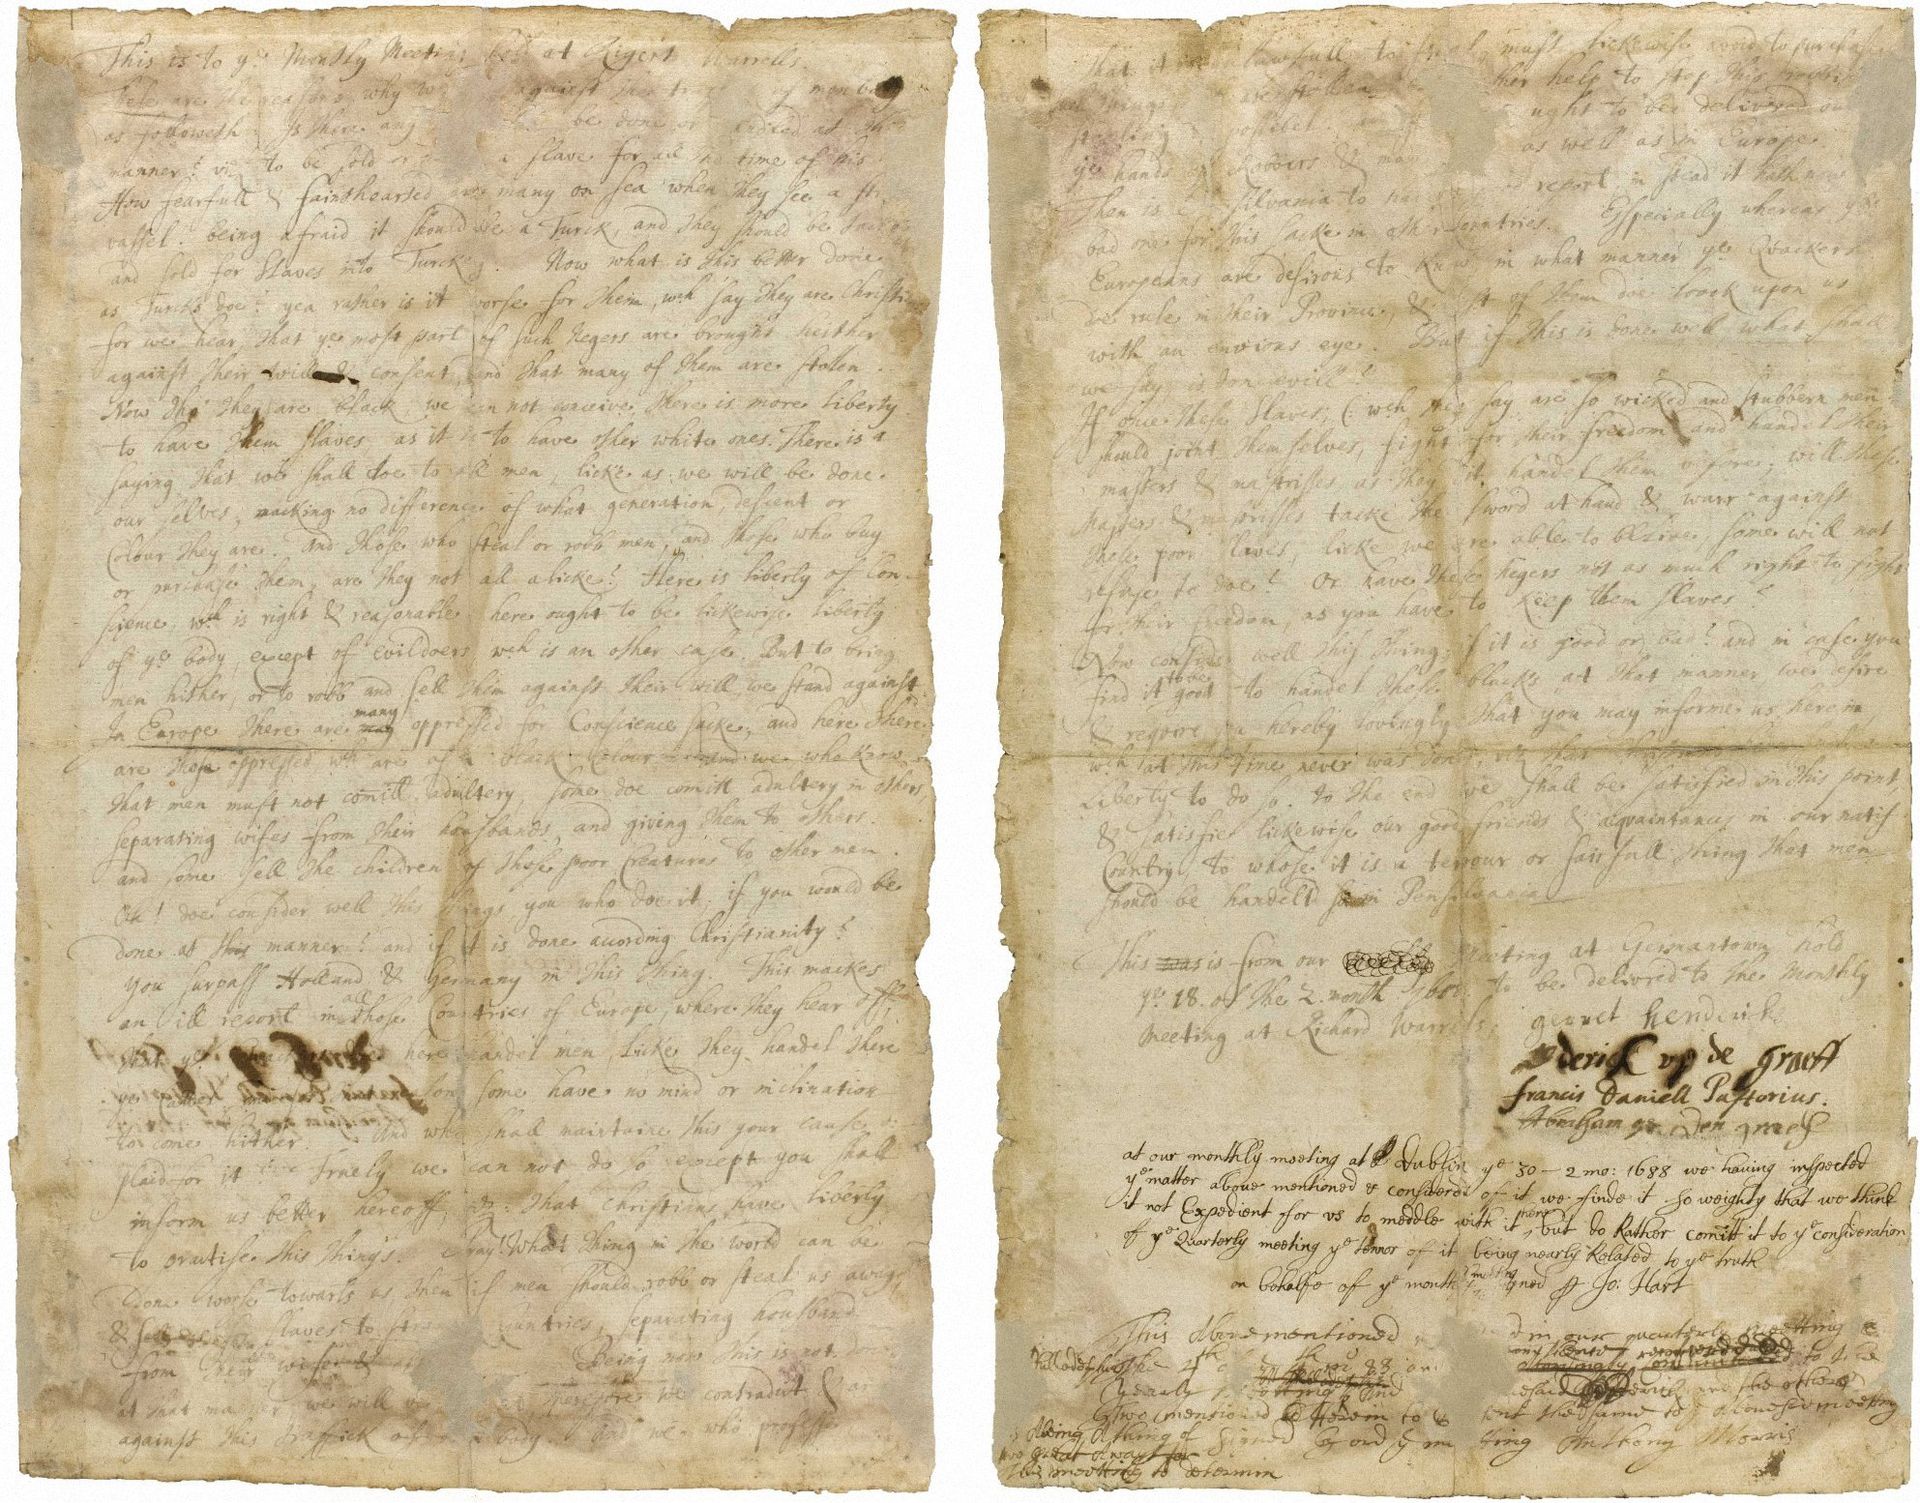 This is to ye Monthly Meeting held at Rigert Warrells.
These are the reasons why we against the traffick of mens body
as followeth: Is there any be done or handled at this
manner? viz to be sold or a slave for all the time of his
How fearfull & fainthearted are many on sea when they see a
vassel. being afraid it should be a Turck, and they should be tacken
and sold for Slaves into Turckey. Now what is this better done
as Turcks doe? yea rather is it worse for them, wch say they are Christians
for we hear, that ye most part of such Negers are brought heither
against their will & consent, and that many of them are stolen.
Now tho they are black, we can not conceive there is more liberty
to have them slaves, as it is to have other white ones. There is a
saying that we shall doe to all men, licke as we will be done
our selves; macking no difference of what generation, descent or
Colour they are. and those who steal or robb men, and those who buy
or purchase them, are they not all alicke? Here is liberty of Con-
science, wch is right & reasonable, here ought to be lickewise liberty
of ye body, except of evildoers wch is an other case. But to bring
men hither, or to robb and sell them against their will, we stand against.
In Europe there are many oppressed for Conscience sacke; and here there
are those oppressed wch are of a black Colour. and we who know
that men must not comitt adultery, some doe comitt adultery in others,
separating wifes from their housbands, and giving them to others.
and some sell the children of those poor Creatures to other men.
Oh! doe consider well this things, you who doe it; if you would be
done at this manner? and if it is done according Christianity?
You surpass Holland & Germany in this thing. This mackes
an ill report in all those Countries of Europe, where they hear off,
that ye here handel men, licke they handel there
ye some have no mind or inclination
to come hither. And who shall maintaine this your cause or
plaid for it? Truely we can not do so except you shall
inform us better hereoff, viz: that Christians have liberty
to practise this things. Pray! What thing in the world can be
done worse towarts us then if men should robb or steal us away,
& sell us for slaves to strange Countries, separating housband
from their wife & Being now this is not
at that manner we will be therefore we contradict & are
against this traffick of men body. And we who profess
that it is lawfull to steal, must lickewise avoid to purchase
such things are stollen help to stop this robbing
stealing if possibel. ought to be delivered out
ye hands of Robbers & as well as in Europe.
Then is Pensilvania to have report, in stead it hath now
bad one for this sacke in other Countries. Especially whereas ye
Europeans are desirous to know in what manner ye Quackers
doe rule in their Province, & most of them doe loock upon us
with an envious eye. But if this is done well, what shall
we say, is don evill?
If once these slaves, (: wch they say are so wicked and stubbern men:
should joint themselves, fight for their freedom and handel their
masters & mastrisses as they did handel them before; will these
masters & mastrisses tacke the sword at hand & warr against
these poor slaves, licke we are able to belive, some will not
refuse to doe? Or have these Negers not as much right to fight
for their freedom, as you have to keep them slaves?
Now consider well this thing, if it is good or bad? and in case you
find it to be good to handel these blacks at that manner, we desire
& require you hereby lovingly, that you may informe us herein,
wch at this time never was done, viz that
liberty to do so. to the end we shall be satisfied in this point,
& satisfie lickewise our good friends & acquaintances in our natif
Country, to whose it is a terrour or fairfull thing that men
should be handeld so in Pensilvania.
This was is from our Meeting at Germantown hold
ye 18. of the 2. month 1688. to be delivred to the Monthly
Meeting at Richard Warrels.
gerret hendericks
derick op de graeff
Francis Daniell Pastorius.
Abraham op Den graef
at our monthly meeting at Dublin ye 30 – 2 mo: 1688 we having inspected
ye matter above mentioned & considered of it we finde it so weighty that we think
it not Expedient for us to meddle with it here, but do Rather comitt it to ye consideration
of ye Quarterly meeting ye tennor of it being nearly Related to ye truth
on behalfe of ye monthly meeting signed pp Jo: Hart
This Abovementioned in our quarterly meeting
Philadelphia the 4th
Yearly Meeting and
two mentioned Herein to the same to ye abovesaid meeting
being A thing of signed By order of ye meeting Anthony Morris
too great A wayt for
this meeting to determin